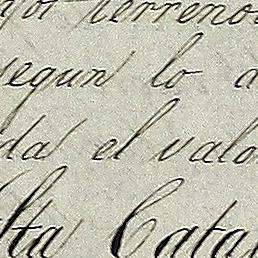 terreno
segun lo a
da el valo
lta Cata